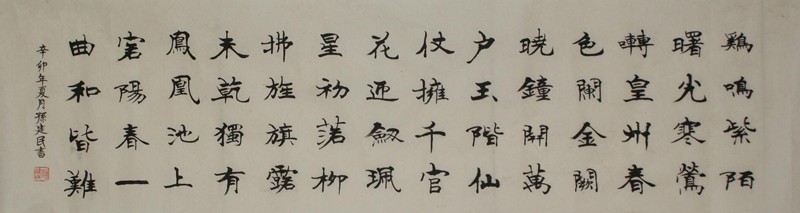 鷄鳴紫陌
曙光寒鶯
囀皇州春
色闌金闕
曉鐘開萬
户玉階仙
仗擁千官
花迎劔珮
星初落柳
拂旌旗露
未乾獨有
鳳凰池上
客陽春一
曲和皆難
辛卯年夏月孫建民書